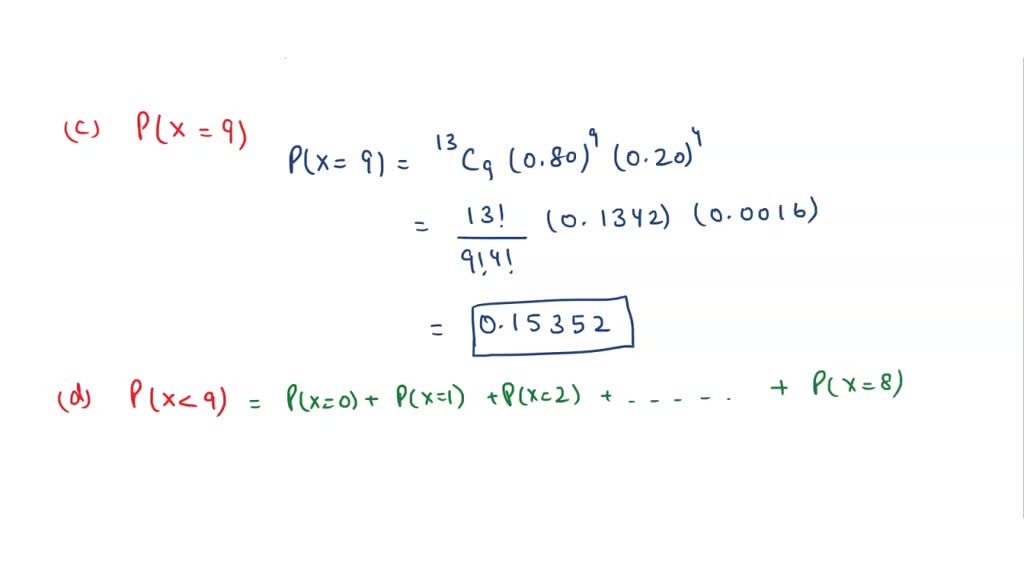 (c) P(x = 9)
P(x = 9) = ¹³C₉ (0.80)⁹ (0.20)⁴
= 13!/9!4! (0.1342) (0.0016)
= 0.15352
(d) P(x < 9) = P(x=0) + P(x=1) + P(x=2) + - - - - - . + P(x=8)